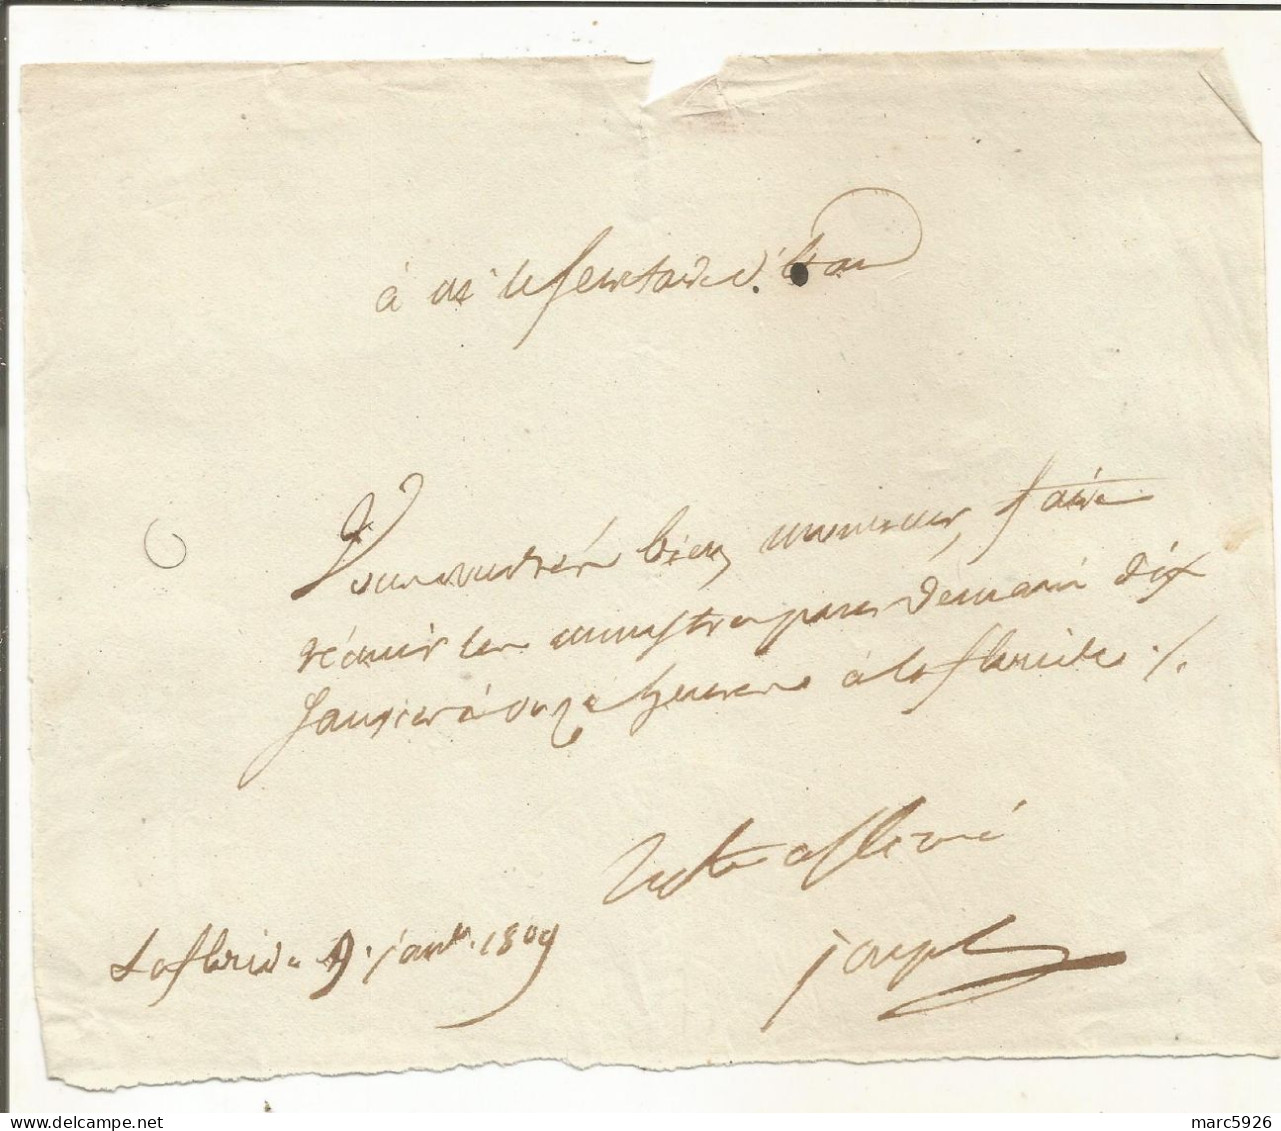 à m le secretaire d'état
Vous voudrés bien, monsieur, faire
réunir les ministres pour demain dix
janvier à onze heures à la floride ./.
votre affectioné
La floride 9. janvr. 1809
joseph
marc5926